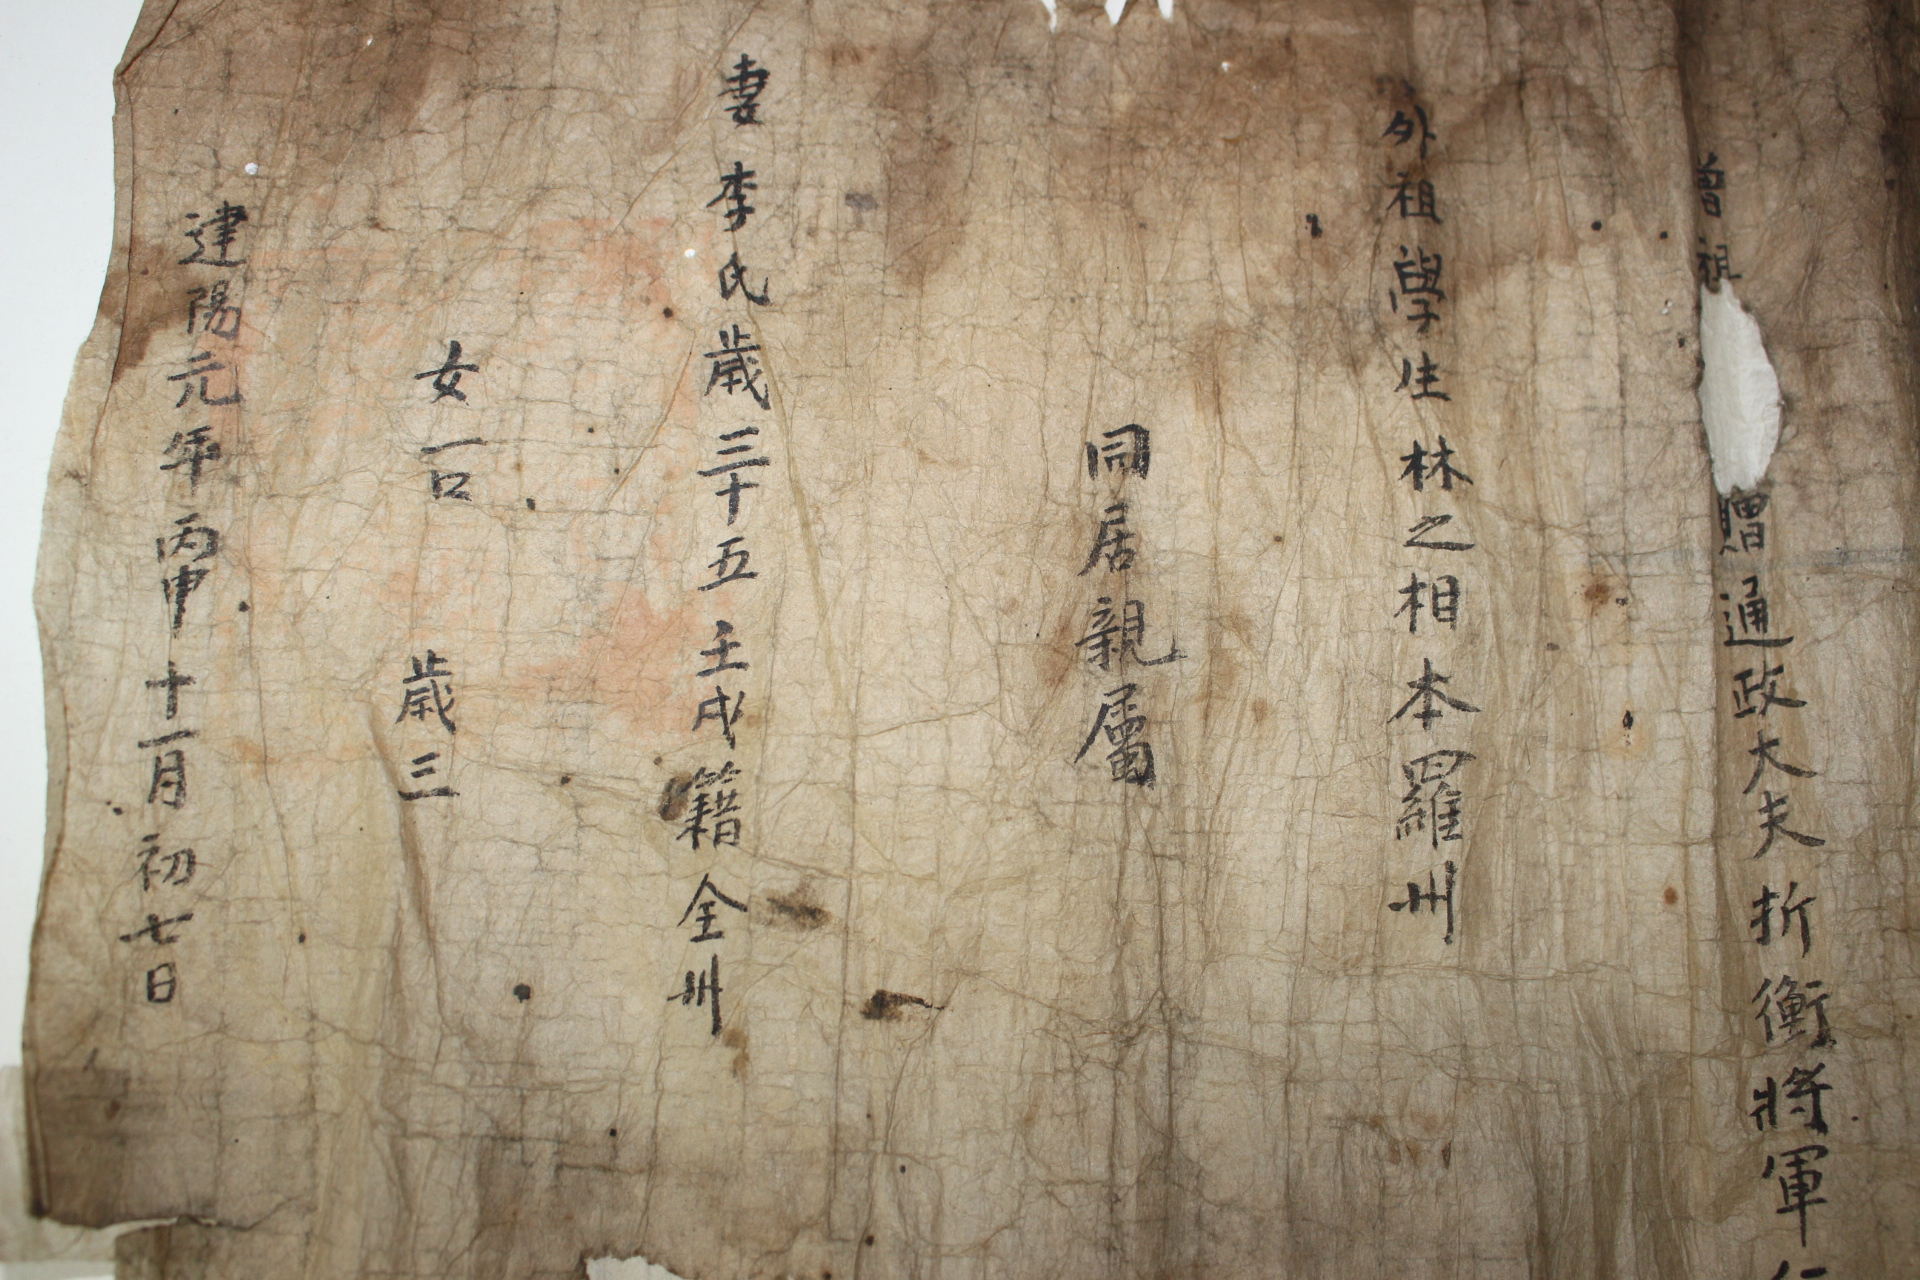 曾祖 贈通政大夫折衝將軍行
外祖學生林之相本羅州
同居親屬
妻李氏歲三十五壬戌籍全州
女一口 歲三
建陽元年丙申十一月初七日